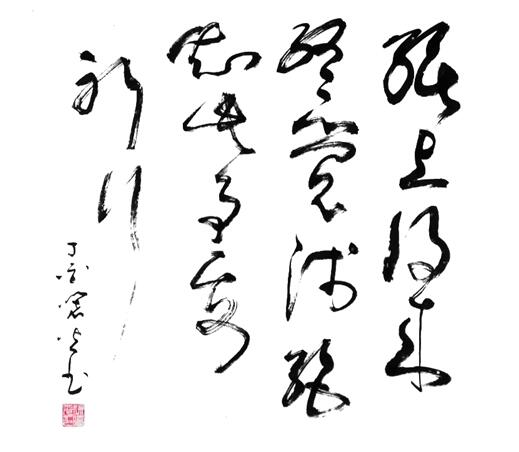 纸上得来
终觉浅绝
知此事要
躬行
丁亥
书